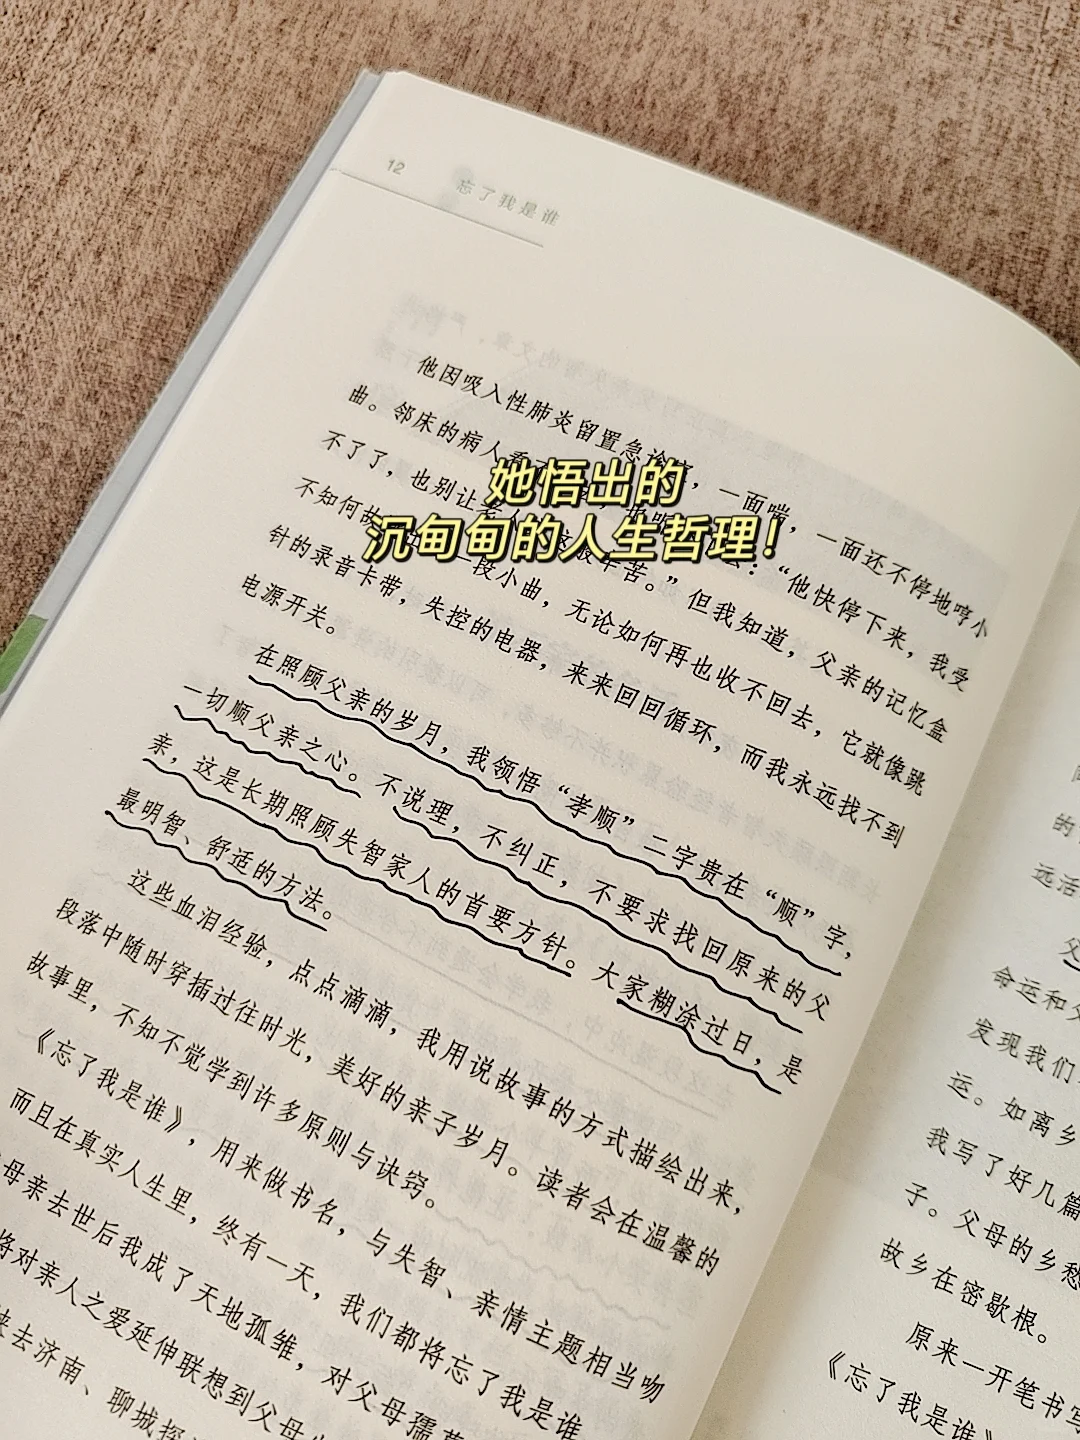 12 忘了我是谁
他因吸入性肺炎留置急诊室，一面喘，一面还不停地哼小
曲。邻床的病人
她悟出的
沉甸甸的人生哲理！
：“他快停下来，我受
不了了，也别让老人
这般辛苦。”但我知道，父亲的记忆盒
不知何故
一段小曲，无论如何再也收不回去，它就像跳
针的录音卡带，失控的电器，来来回回循环，而我永远找不到
电源开关。
在照顾父亲的岁月，我领悟“孝顺”二字贵在“顺”字，
一切顺父亲之心。不说理，不纠正，不要求找回原来的父
亲，这是长期照顾失智家人的首要方针。大家糊涂过日，是
最明智、舒适的方法。
这些血泪经验，点点滴滴，我用说故事的方式描绘出来，
段落中随时穿插过往时光，美好的亲子岁月。读者会在温馨的
故事里，不知不觉学到许多原则与诀窍。
《忘了我是谁》，用来做书名，与失智、亲情主题相当吻
而且在真实人生里，终有一天，我们都将忘了我是谁
母亲去世后我成了天地孤雏，对父母孺
将对亲人之爱延伸联想到父母
去济南、聊城探
的
远活
父
命运和
发现我们
运。如离乡
我写了好几篇
子。父母的乡愁
故乡在密歇根。
原来一开笔书写
《忘了我是谁》